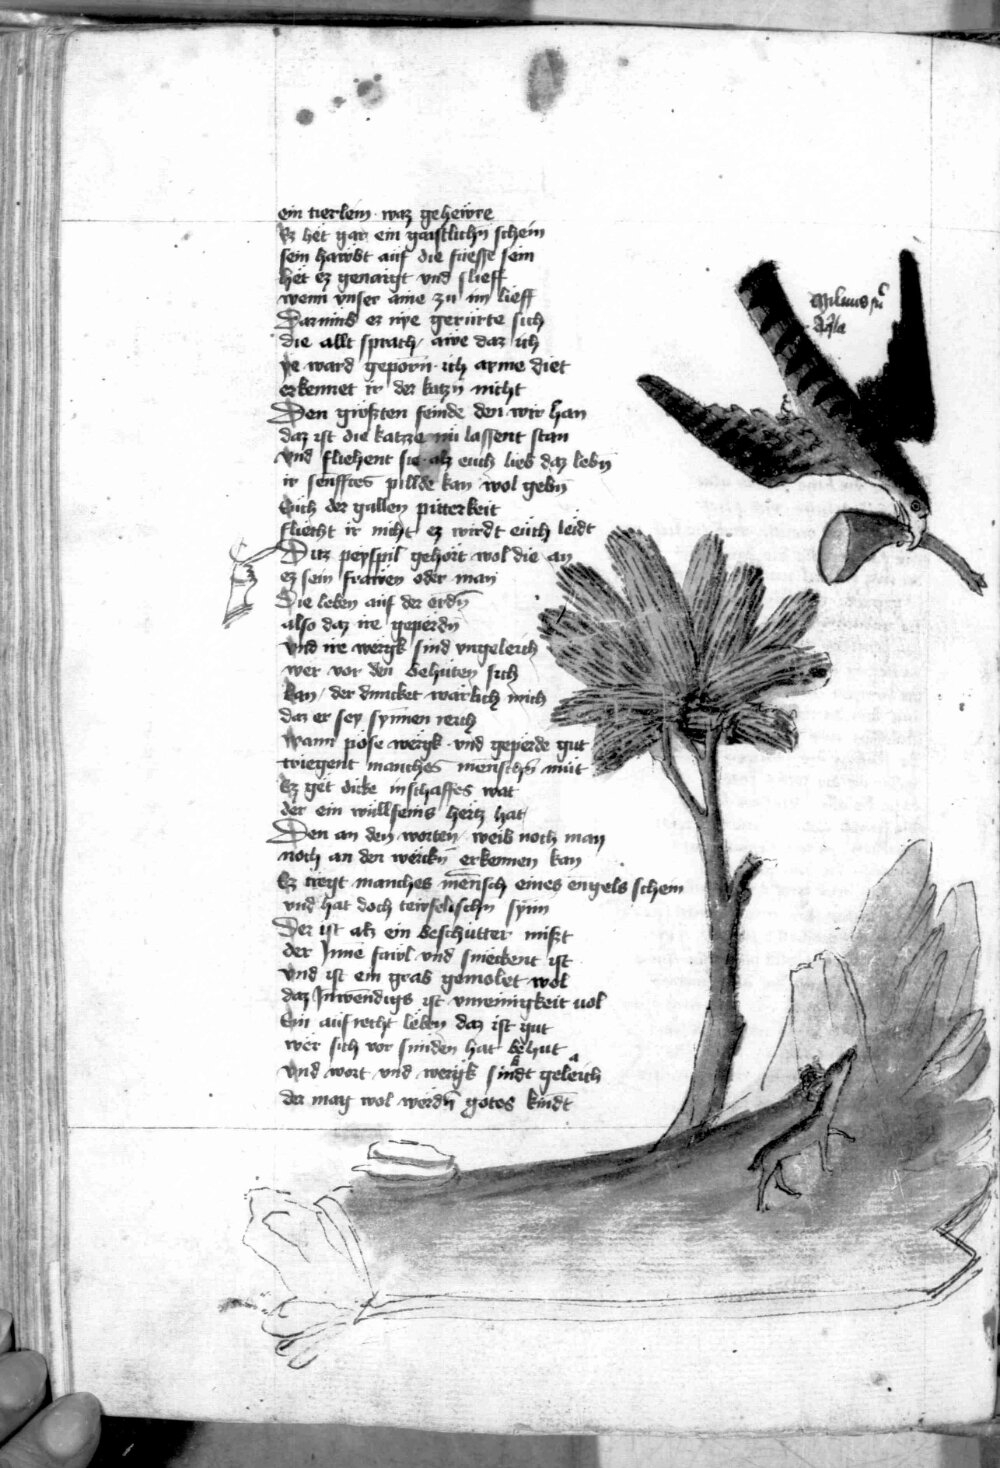 ein tierlein · waz gehewre
Ez het gar ein gaistlichn schein
sein hawbt auf die fuesse sein
het ez genaigt vnd slieff
wenn vnser aine zu im lieff
Darnmb er nye gerürte sich
die allt sprach / awe daz ich
ye ward geporn · ich arme diet
erkennet ir der katzn̄ nicht
Den größten feinde den wir han
daz ist die katze nu lassent stan
vnd fliehent sie alz euch lieb daz lebn̄
ir senfftes pillde kan wol gebn̄
Euch der gallen pitterkeit
flieht ir nicht ez wirdt eüch leidt
Ditz peyspil gehört wol die an
ez sein frawen oder man
Die leben auf der erdn̄
also daz ire geperdn̄
vnd ire wergk sind vngeleich
wer vor den behüten sich
kan / der duncket warlich mich
daz er sey synnen reich
wann pöse wergk · vnd geperde gut
triegent manches menschn̄ müt
Ez get dicke in schaffes wat
der ein wullfeins hertz hat
Den an den worten weib noch man
noch an den werckn̄ erkennen kan
Ez tregt manches mensch eines engels schein
vnd hat doch tewfelischn synn
Der ist alz ein beschütter mißt
der Jnne fawl vnd smeckent ist
vnd ist ein grab gemolet wol
daz Jnwendigs ist vnreinigkeit vol
Ein aufrecht leben daz ist gut
wer sich vor sunden hat behut
b a
vnd wort vnd wergk sindt geleich
der mag wol werdn̄ gotes kindt
Miluus
Aq̄la